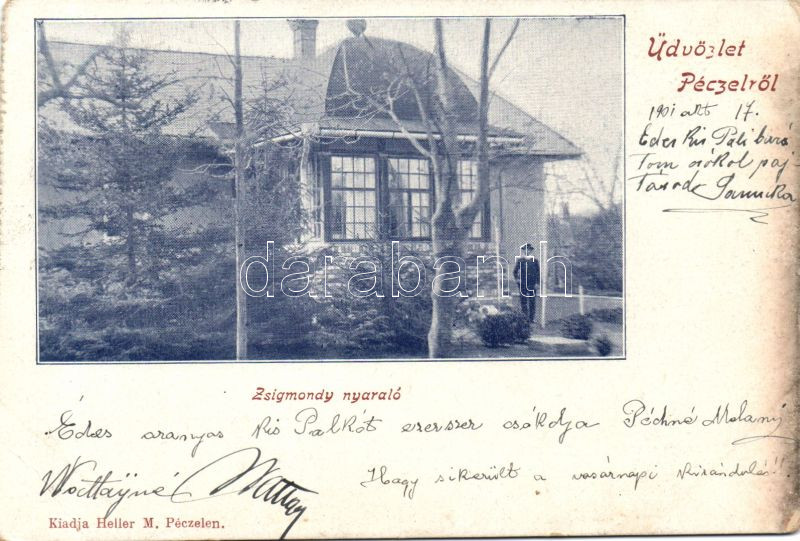 Üdvözlet
Péczelről
1901 okt 17.
Édes kis Pali baró
Tom csókol
databanth
Zsigmondy nyaraló
Édes aranyos kis Palkót ezerszer csókolja Péchné Melanÿ
Wottaÿné
Hogy sikerült a vasárnapi kirándulás!!
Kiadja Heller M. Péczelen.